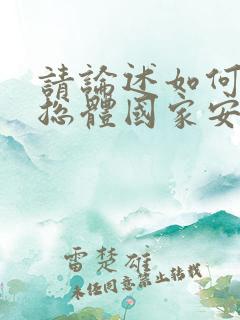 請論述如何
總體國家安
雷楚雄
未任同意禁止转载